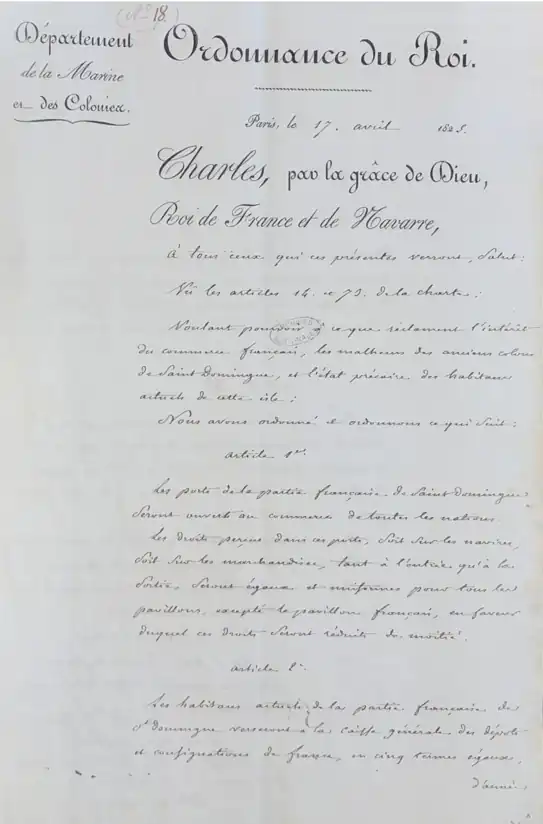 (N° 18.)
Département
de la Marine
et des Colonies.
Ordonnance du Roi.
Paris, le 17. avril 1825.
Charles, par la grâce de Dieu,
Roi de France et de Navarre,
À tous ceux qui ces présentes verront, Salut:
Vu les articles 14. et 73. de la charte;
Voulant pourvoir à ce que réclament l'intérêt
du commerce français, les malheurs des anciens colons
de Saint Domingue, et l'état précaire des habitans
actuels de cette isle;
Nous avons ordonné et ordonnons ce qui suit:
article 1er.
Les ports de la partie française de Saint Domingue
seront ouverts au commerce de toutes les nations.
Les droits perçus dans ces ports, soit sur les navires,
soit sur les marchandises, tant à l'entrée qu'à la
sortie, seront égaux et uniformes pour tous les
pavillons, excepté le pavillon français, en faveur
duquel ces droits seront réduits de moitié.
article 2e.
Les habitans actuels de la partie française de
St Domingue verseront à la caisse générale des dépôts
et consignations de france, en cinq termes égaux,
d'année,